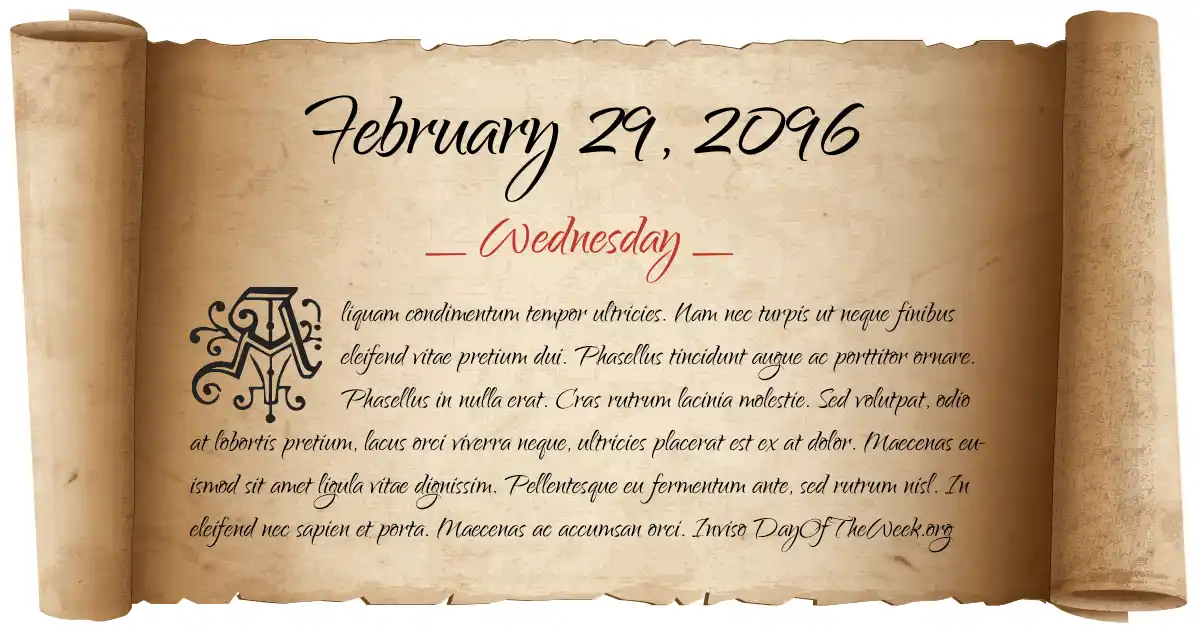 February 29, 2096
Wednesday
Aliquam condimentum tempor ultricies. Nam nec turpis ut neque finibus
eleifend vitae pretium dui. Phasellus tincidunt augue ac porttitor ornare.
Phasellus in nulla erat. Cras rutrum lacinia molestie. Sed volutpat, odio
at lobortis pretium, lacus orci viverra neque, ultricies placerat est ex at dolor. Maecenas eu-
ismod sit amet ligula vitae dignissim. Pellentesque eu fermentum ante, sed rutrum nisl. In
eleifend nec sapien et porta. Maecenas ac accumsan orci. Inviso DayOfTheWeek.org